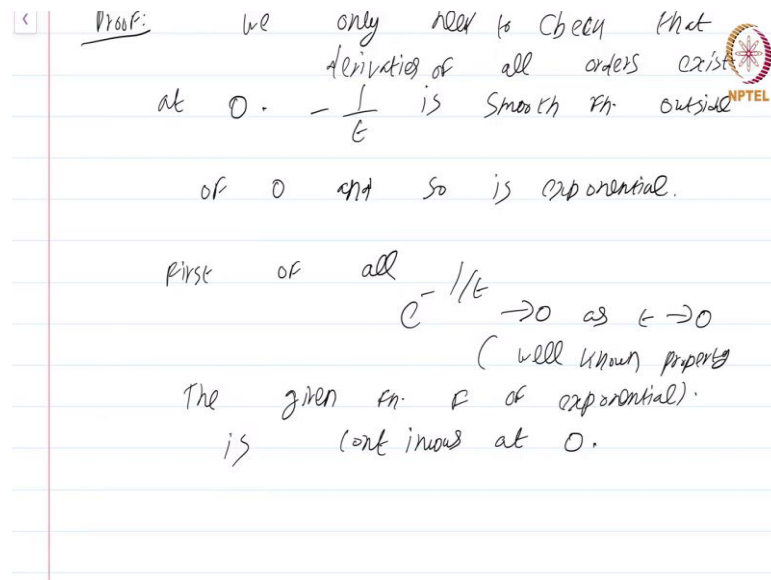 Proof: We only need to check that
derivaties of all orders exist
at 0. - 1/t is smooth Fn. outside
NPTEL
of 0 and so is exponential.
First of all
e^{-1/t} →0 as t →0
( well known property
The given Fn. F of exponential).
is continuous at 0.